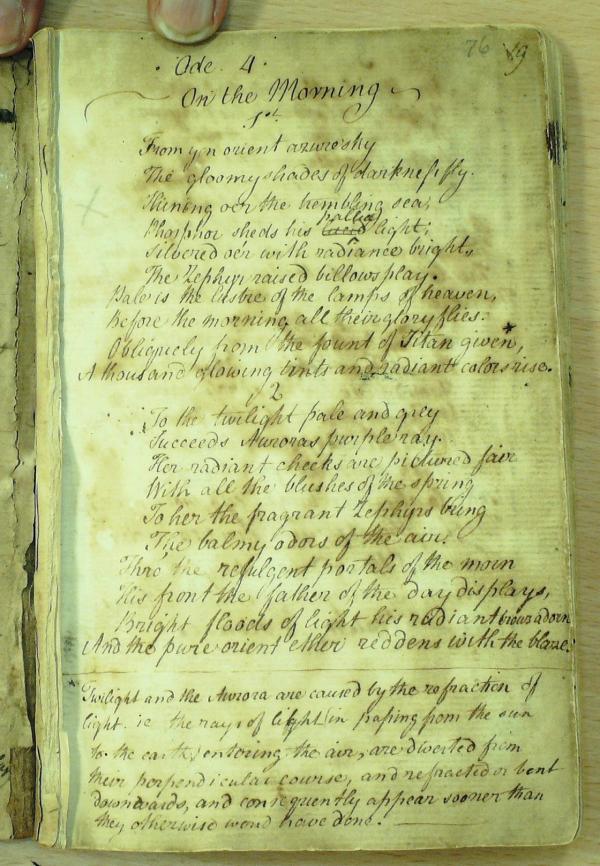 76 19
Ode. 4.
On the Morning
1st
From yon orient azure sky
The gloomy shades of darkness fly.
Shining oer the trembling sea,
Phosphor sheds his pallid light;
Silvered oer with radiance bright,
The Zephyr raised billows play.
Pale is the lustre of the lamps of heaven,
Before the morning all their glory flies:
Obliquely from the fount of Titan given,*
A thousand glowing tints and radiant colors rise.
2
To the twilight pale and grey
Succeeds Auroras purple ray.
Her radiant cheeks are pictured fair
With all the blushes of the spring
To her the fragrant Zephyrs bring
The balmy odors of the air.
Thro the refulgent portals of the morn
His front the father of the day displays,
Bright floods of light his radiant brows adorn
And the pure orient ether reddens with the blaze.
* Twilight and the Aurora are caused by the refraction of
light. ie the rays of light (in passing from the sun
to the earth) entering the air, are diverted from
their perpendicular course, and refracted or bent
downwards, and consequently appear sooner than
they otherwise woud have done.